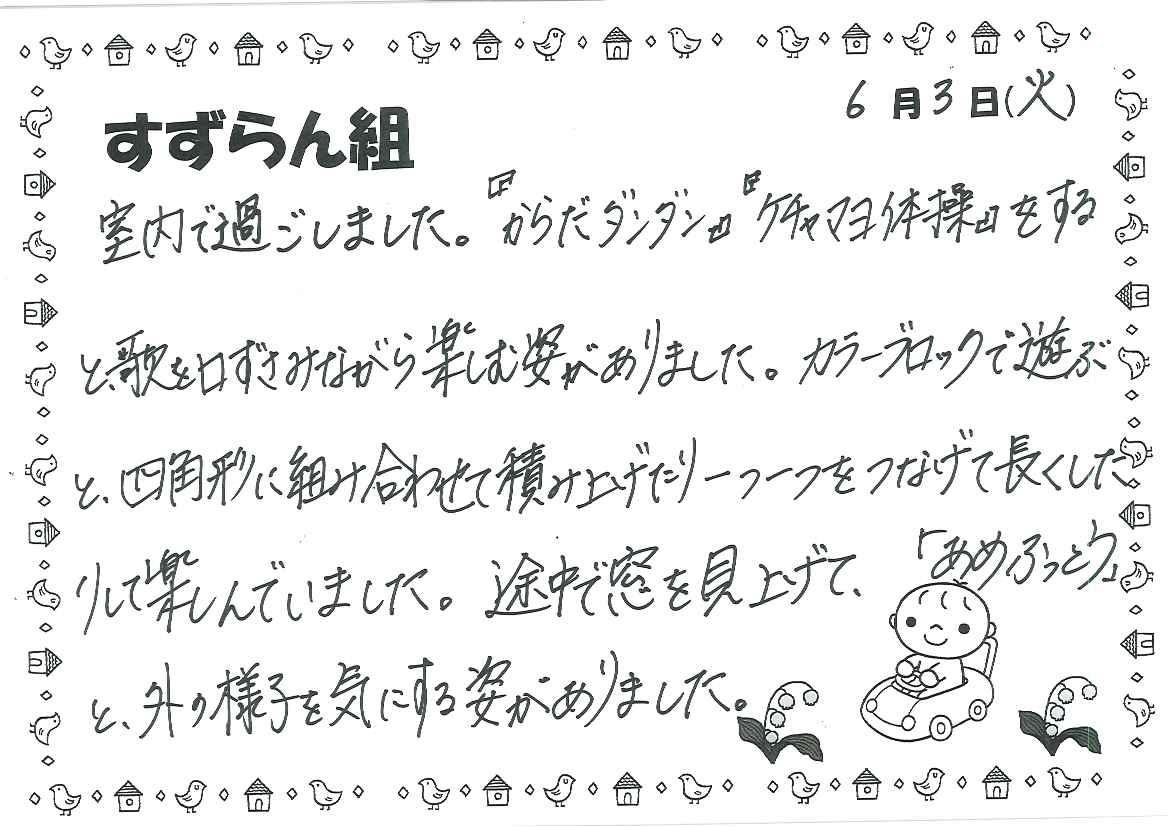 6月3日(火)
すずらん組
室内で過ごしました。『からだダンダン』『ケチャマヨ体操』をする
と、歌を口ずさみながら楽しむ姿がありました。カラーブロックで遊ぶ
と、四角形に組み合わせて積み上げたり一つ一つをつなげて長くした
りして楽しんでいました。途中で窓を見上げて、「あめふっとう」
と、外の様子を気にする姿がありました。